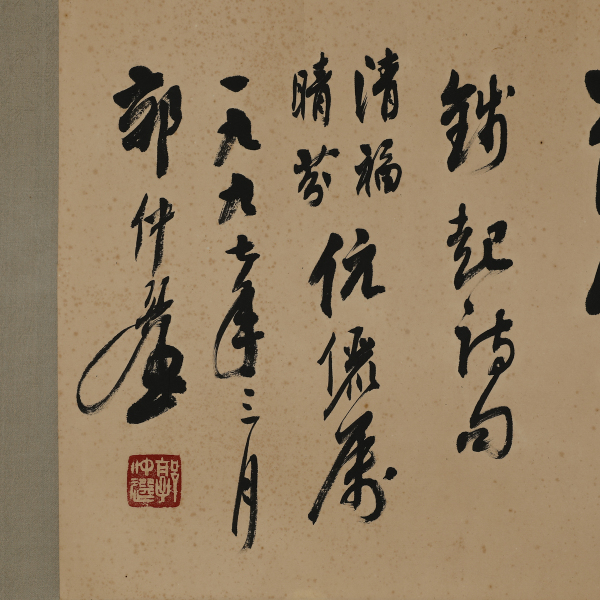 錢起詩句
清福
晴芬
伉儷属
一九九七年三月
郭仲選
郭仲選